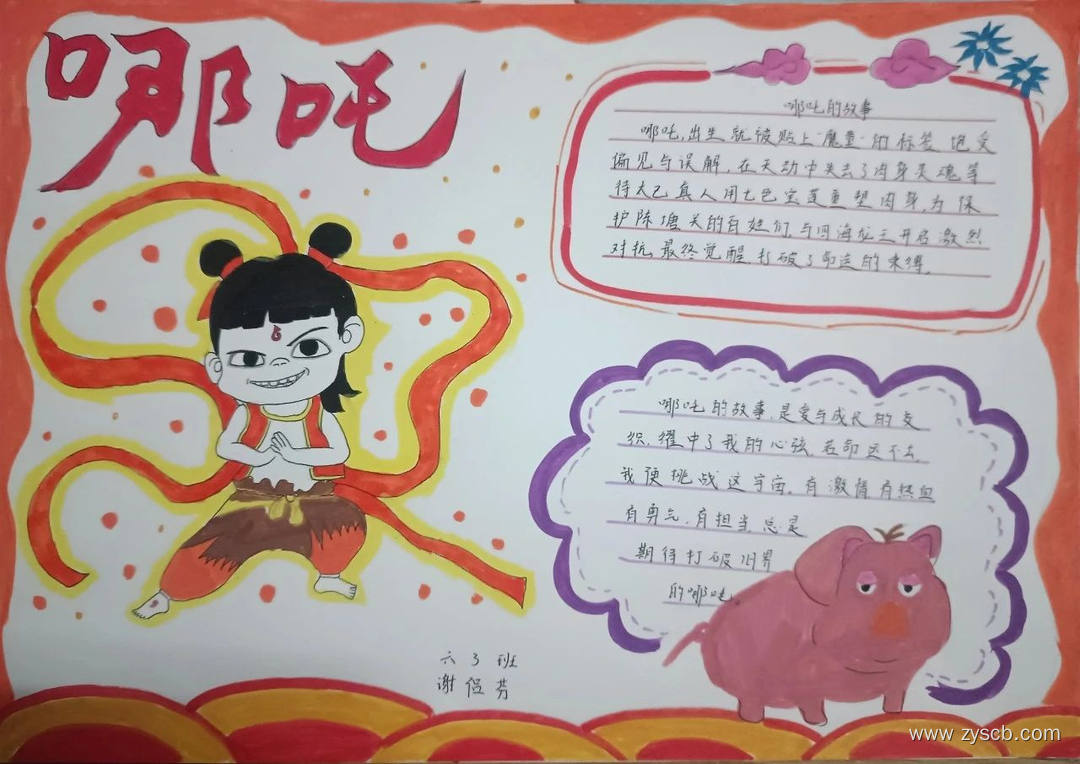 哪吒
哪吒的故事
哪吒,出生就被贴上"魔童"的标签 饱受
偏见与误解,在天动中失去了肉身灵魂等
待太乙真人用七色宝莲重塑肉身,为保
护陈塘关的百姓们,与四海龙王开启激烈
对抗,最终觉醒打破了命运的束缚.
哪吒的故事,是爱与成长的交
织,擢中了我的心弦,若命运不公,
我便挑战这宇宙,有激情有热血
有勇气,有担当,总是
期待打破旧界
的哪吒
六3班
谢侣芬
www.zyscb.com